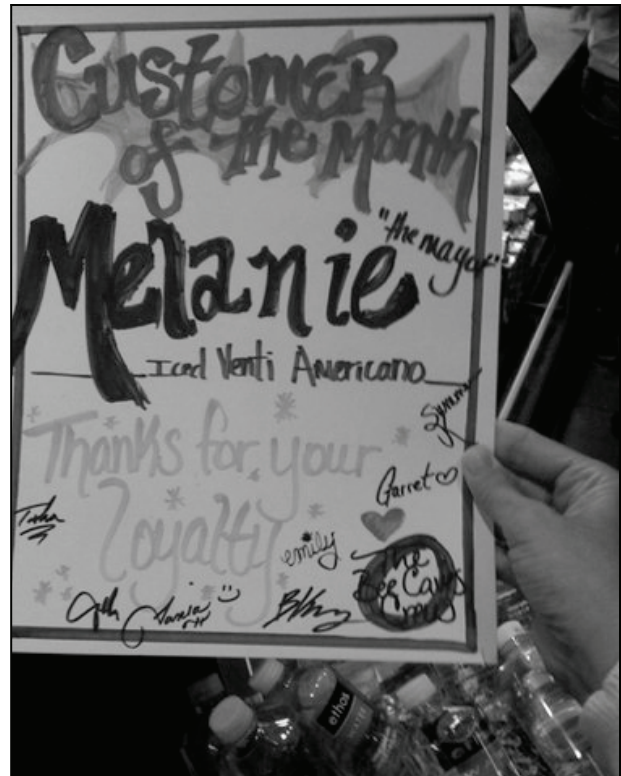 Customer
of the Month
Melanie
"the mayor"
Iced Venti Americano
Thanks for your
Loyalty
Garret
emily
The
Bee Caves
Crew
ethos